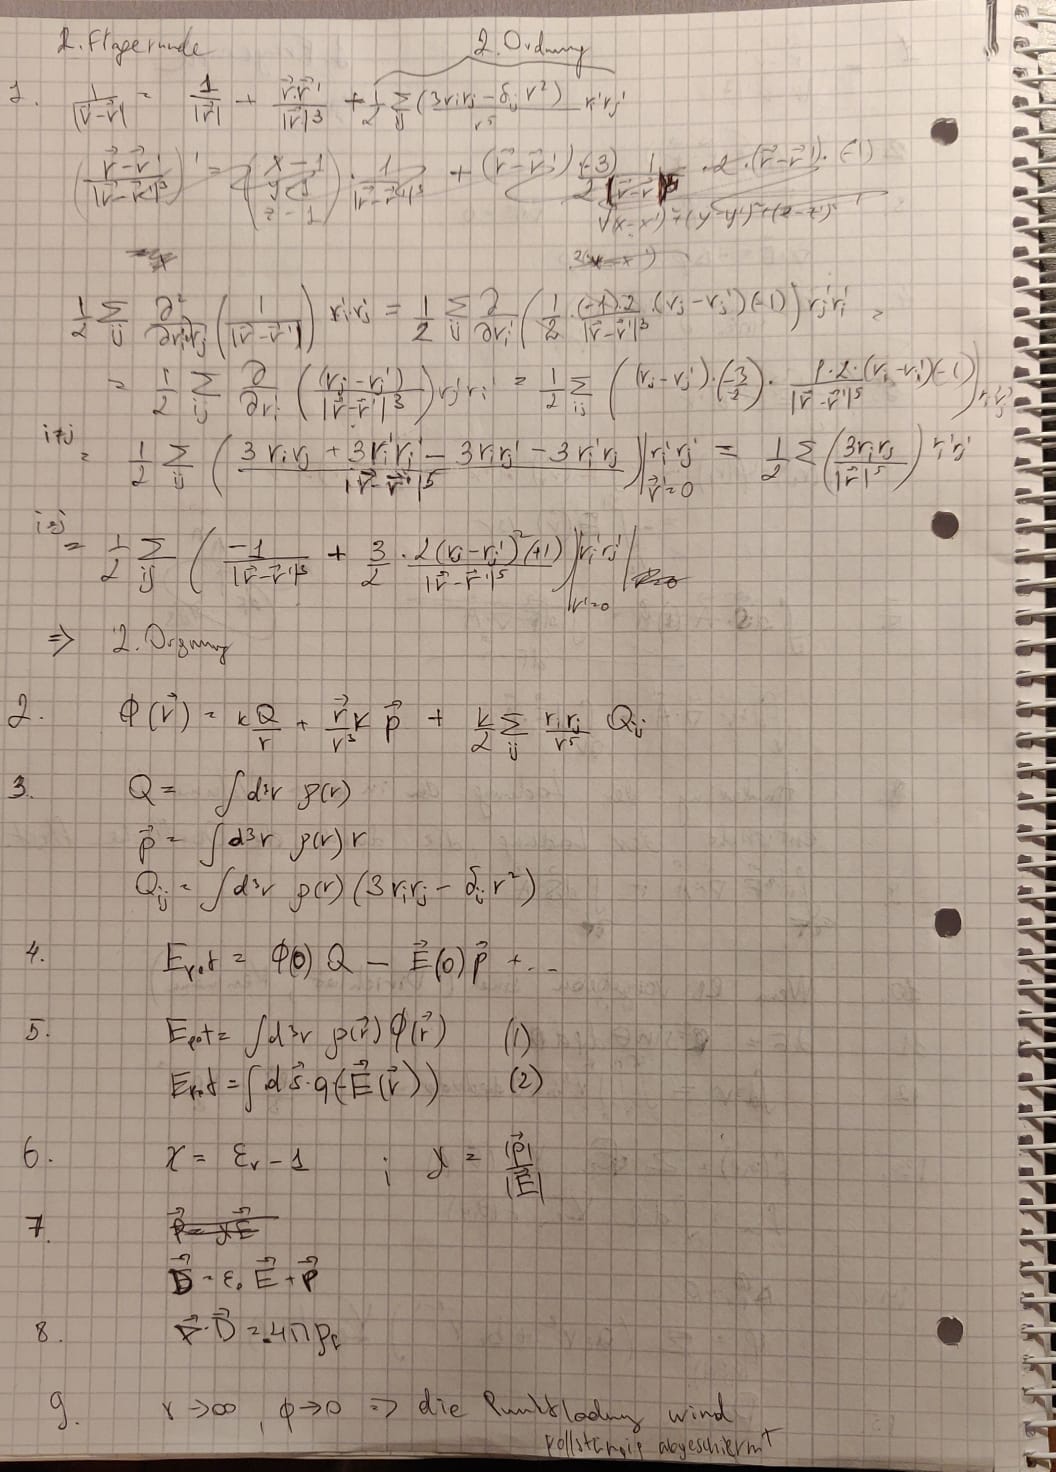 2. Fragerunde
2. Ordnung
1. 1/|r⃗-r⃗'| = 1/|r⃗| + r⃗r⃗'/|r⃗|³ + 1/2 Σ_ij (3r_i r_j - δ_ij r²)/r⁵ r_i' r_j'
1/2 Σ_ij ∂²/∂r_i'∂r_j' (1/|r⃗-r⃗'|) r_i' r_j' = 1/2 Σ_ij ∂/∂r_i' (1/2 · (-1)·2/|r⃗-r⃗'|³ · (r_j - r_j')(-1)) r_j' r_i' =
= 1/2 Σ_ij ∂/∂r_i' ((r_j - r_j')/|r⃗-r⃗'|³) r_j' r_i' = 1/2 Σ_ij ((r_j - r_j')·(-3/2)· 1·2·(r_i - r_i')(-1)/|r⃗-r⃗'|⁵) r_i' r_j'
i≠j = 1/2 Σ_ij (3r_i r_j + 3r_i' r_j' - 3r_i r_j' - 3r_i' r_j)/|r⃗-r⃗'|⁵)|_r⃗'=0 r_i' r_j' = 1/2 Σ (3r_i r_j/|r⃗|⁵) r_i' r_j'
i=j = 1/2 Σ_ij (-1/|r⃗-r⃗'|³ + 3/2 · 2(r_j - r_j')²(+1)/|r⃗-r⃗'|⁵)|_r'=0 r_i' r_j'
⇒ 2. Ordnung
2. Φ(r⃗) = kQ/r + r⃗/r³ k p⃗ + k/2 Σ_ij r_i r_j/r⁵ Q_ij
3. Q = ∫d³r ρ(r)
p⃗ = ∫d³r ρ(r) r
Q_ij = ∫d³r ρ(r) (3r_i r_j - δ_ij r²)
4. E_pot = Φ(0) Q - E⃗(0) p⃗ + ...
5. E_pot = ∫d³r ρ(r⃗) Φ(r⃗) (1)
E_pot = ∫ds⃗·q(-E⃗(r⃗)) (2)
6. χ = ε_r - 1 ; χ = |p⃗|/|E⃗|
7. P⃗ = χE⃗
D⃗ = ε₀ E⃗ + P⃗
8. ∇⃗·D⃗ = 4πρ_f
9. r→∞, ϕ→0 ⇒ die Punktladung wird
vollständig abgeschiermt